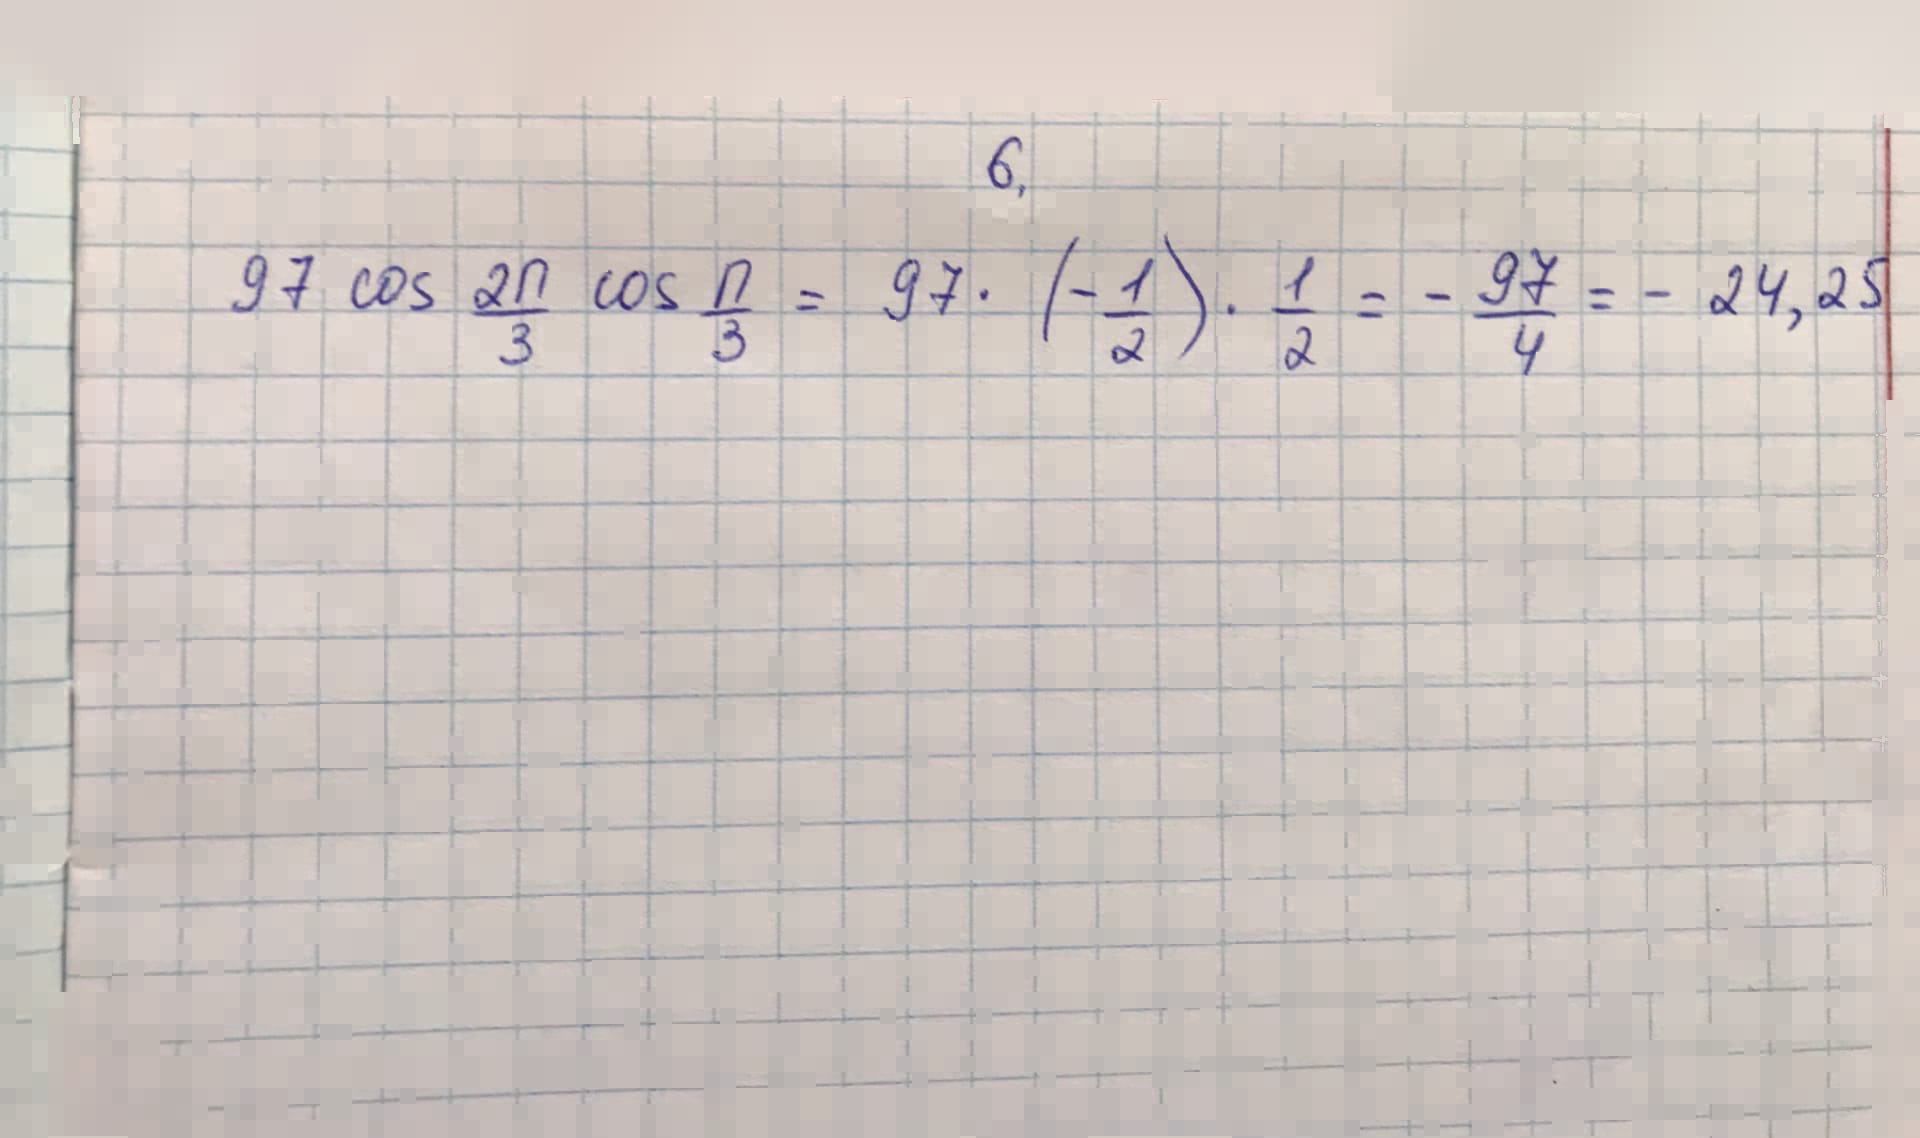 6,
97 cos 2π/3 cos π/3 = 97 · (-1/2) · 1/2 = - 97/4 = - 24,25